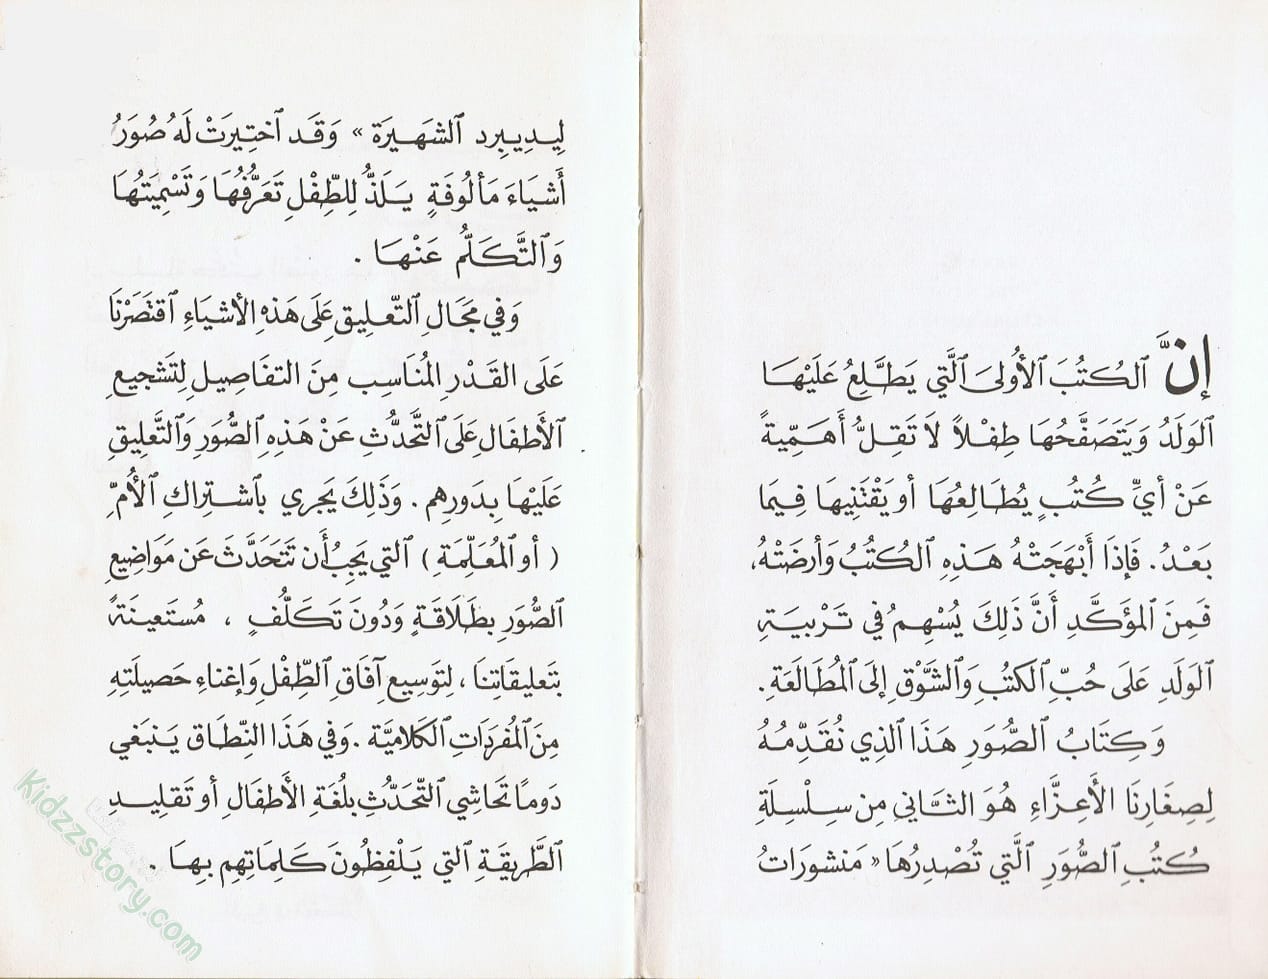 إنَّ ٱلكُتُبَ ٱلأُولىَ ٱلَّتِي يَطَّلِعُ عَلَيْهَا
ٱلوَلَدُ وَيَتَصَفَّحُهَا طِفْلاً لاَ تَقِلُّ أَهَمِّيةً
عَنْ أيِّ كُتُبٍ يُطَالِعُهَا أو يَقْتَنِيهَا فِيمَا
بَعْدُ. فَإذَا أَبْهَجَتْهُ هَذِهِ ٱلكُتُبُ وَأرضَتْهُ،
فَمِنَ ٱلمؤَكَّدِ أنَّ ذَلِكَ يُسْهِمُ فِي تَرْبِيَةِ
ٱلوَلَدِ عَلَى حُبِّ ٱلكتُبِ وَٱلشَّوْقِ إلىَ ٱلمُطَالَعَةِ.
وَكِتَابُ ٱلصُّوَرِ هَذَا ٱلذِي نُقَدِّمُهُ
لِصِغَارِنَا ٱلأَعِزَّاءِ هُوَ ٱلثَّانِي مِن سِلْسِلَةِ
كُتُبِ ٱلصُّوَرِ ٱلَّتِي تُصْدِرُهَا « مَنشورَاتُ
لِيدِيبِرد ٱلشَهِيرَة » وَقَد ٱختِيرَتْ لَهُ صُوَرُ
أَشيَاءَ مَألُوفَةٍ يَلَذُّ لِلطِّفْلِ تَعَرُّفُهَا وَتَسْمِيَتُهَا
وَٱلتَّكَلُّم عَنْهَا .
وَفِي مَجَالِ ٱلتّعلِيق عَلَى هَذهِ الأشيَاءِ ٱقتَصَرْنَا
عَلَى القَدْرِ المُنَاسِب مِنَ التفَاصِيلِ لِتَشجِيعِ
ٱلأَطفَال عَلَى ٱلتَّحَدُّثِ عَنْ هَذِهِ ٱلصُّوَرِ وَٱلتَّعلِيقِ
عَلَيْهَا بِدَورِهِم . وَذَلِكَ يَجرِي بٱشتِراكِ ٱلأُمِّ
( أو ٱلمُعَلِّمَةِ ) ٱلتي يَجِبُ أن تَتَحَدَّثَ عَن مَوَاضِيعِ
ٱلصُّوَرِ بطَلَاقَةٍ وَدُونَ تَكَلُّفٍ ، مُستَعينَةً
بتَعليقَاتِنَا ، لِتَوسِيعِ آفَاقِ ٱلطِّفْلِ وَإغنَاءِ حَصيلَتِهِ
مِنَ ٱلمُفرَدَاتِ ٱلكَلاميَّة . وَفي هَذَا النّطَاق يَنبَغي
دَومًا تَحَاشِي ٱلتّحَدُّثِ بلُغَةِ الأَطفَالِ أو تَقلِيدِ
ٱلطَّرِيقَةِ ٱلتي يَلْفِظُونَ كَلِمَاتِهِم بِهَا .
Kidzzstory.com